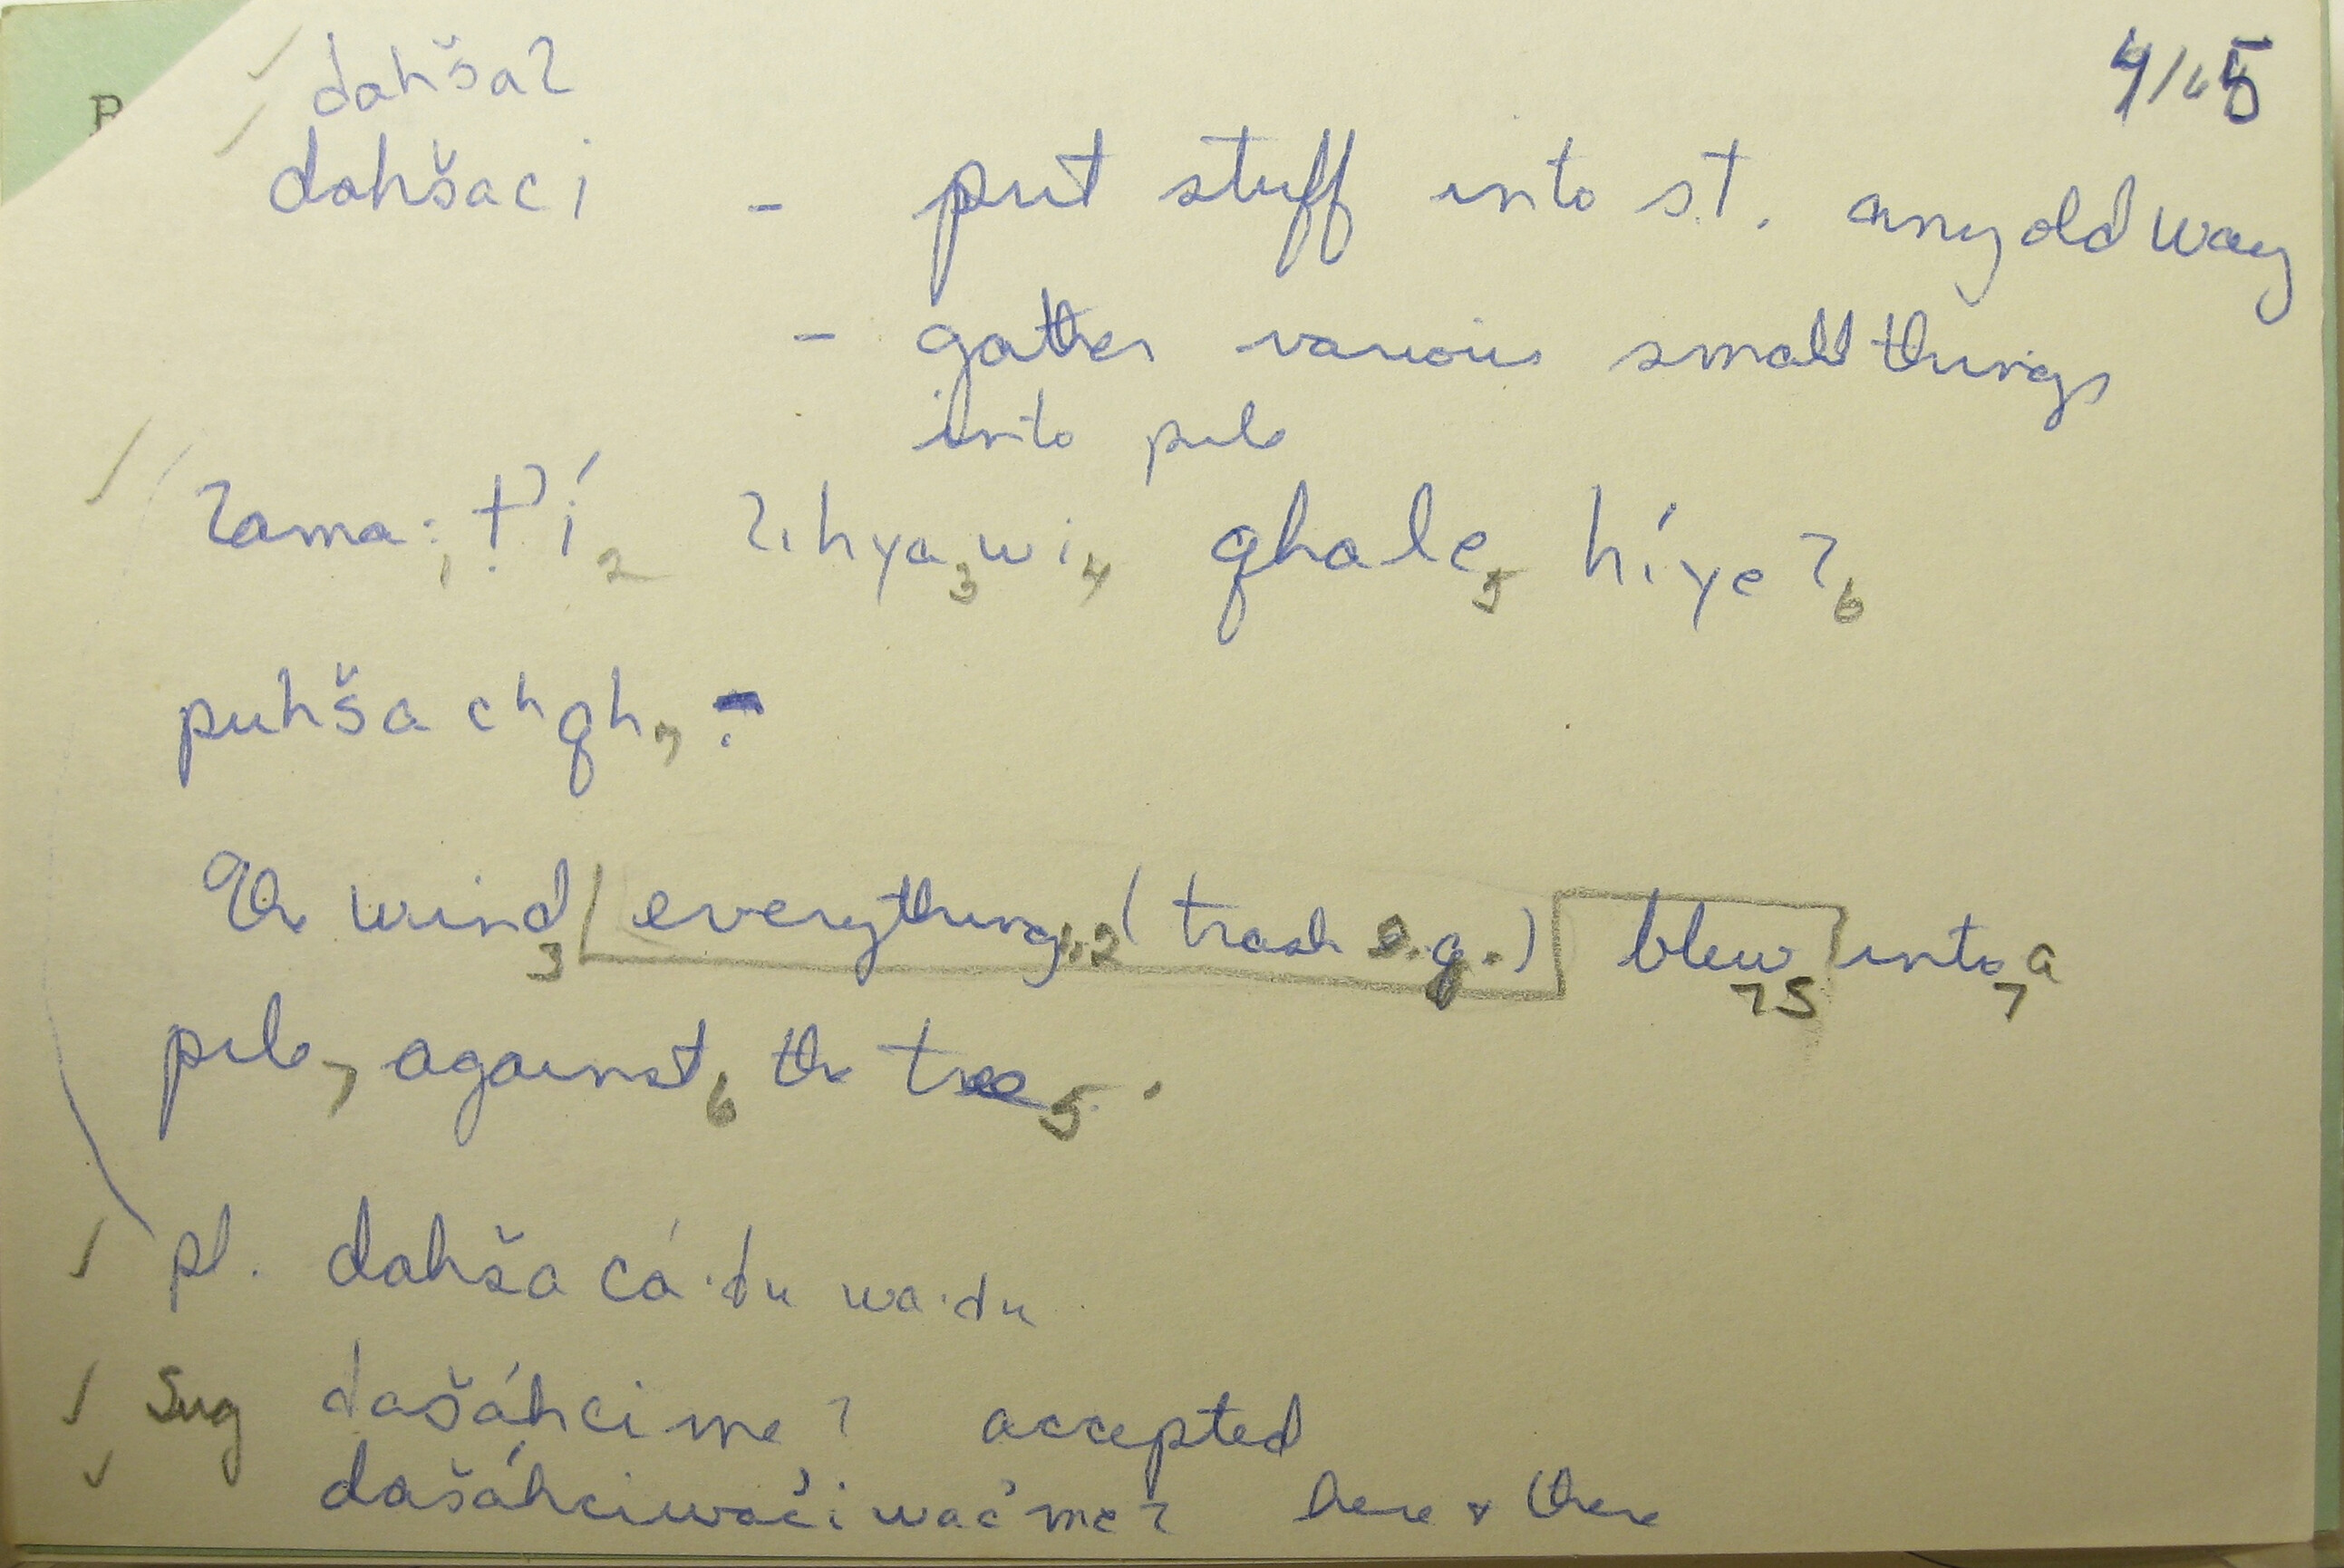 4/65
dahšaʔ
dahšaci - put stuff into s.t. any old way
- gather various small things
into pile
ʔama:₁ ṭʼí₂ ʔihya₃wi₄ qhale₅ híyeʔ₆
puhšacʰqh₇
The wind₃ everything₁.₂ (trash e.g.) blew₇ into₇ a
pile₇ against₆ the tree₅.
pl. dahšacá·du wa·du
Sug dašáhcimeʔ accepted
dašáhciwac̓iwac̓meʔ here & there